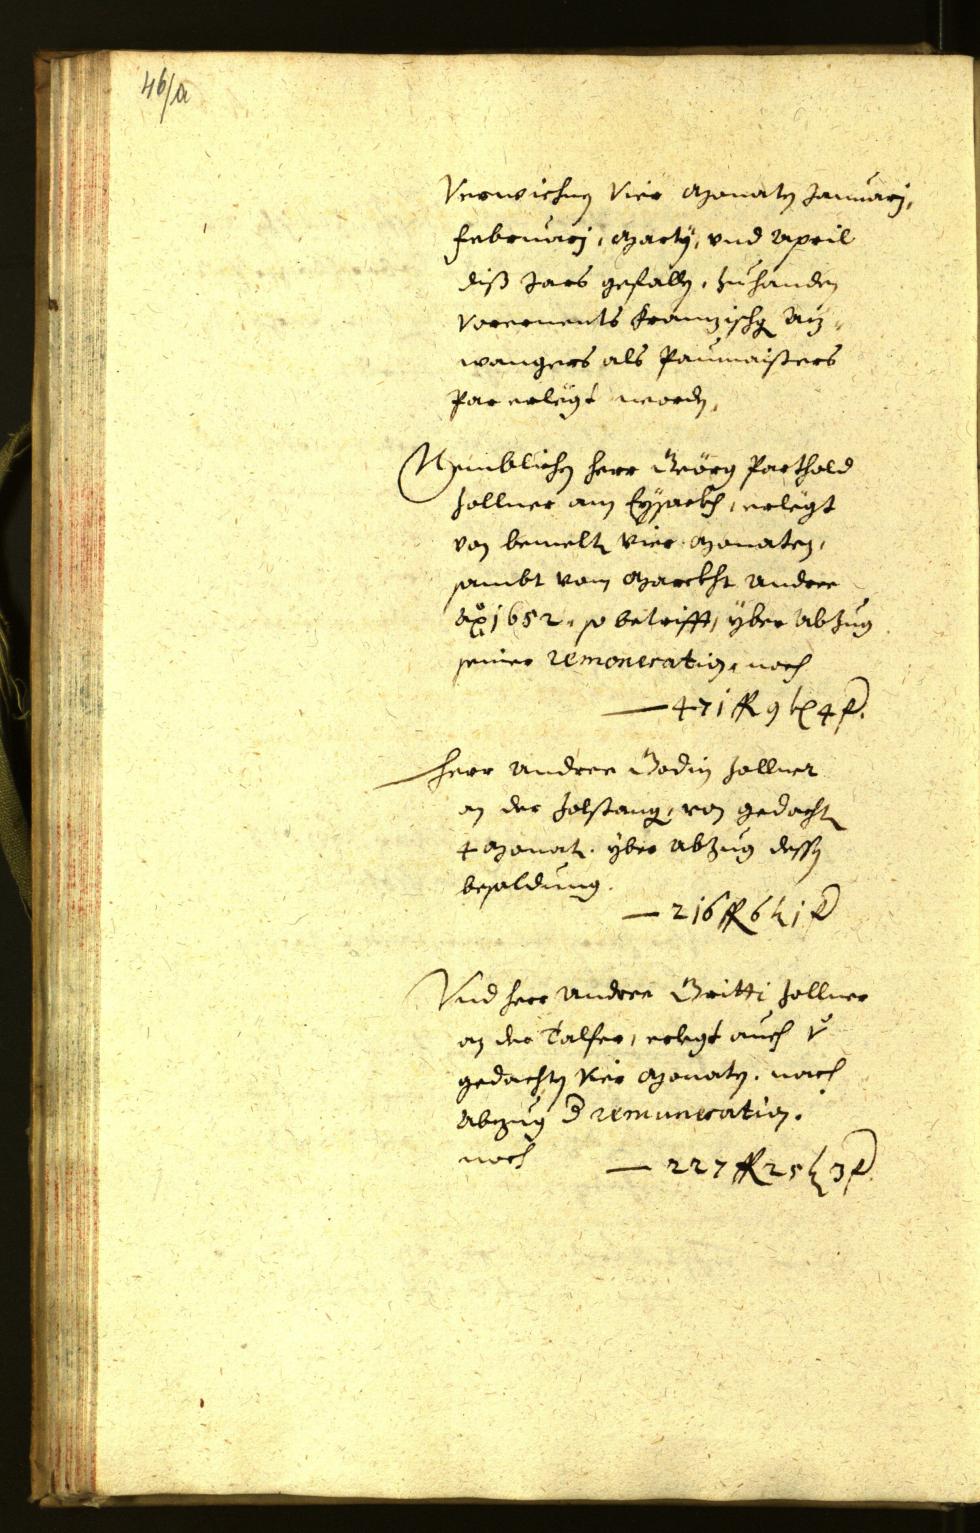 46/a
Verwichnen Vier Monaten Januarj,
Februarj, Marty, vnd April
diß Jars gefallen, zuhanden
Vorernents Frannzischg Aÿ=
wangers als Paumaisters
Par erlögt worden,
Nemblichen herr Geörg Parthold
Zollner am Eÿsackh, erlögt
von bemelten Vier Monaten,
sambt vom Marckht Andree
Ao 1652, so betrifft, yber Abzug
seiner remoneration, noch
— 471 fl 9 kr 4 f.
Herr Andree Godin Zollner
an der Zolstang, von gedachten
4 Monat. yber Abzug dessen
besaldung.
— 216 fl 6 kr 1 f
Vnd herr Andree Gritti Zollner
an der Talfer, erlegt auch v
gedachten Vier Monaten, nach
Abzug d remuneration.
noch — 227 fl 25 kr 3 f.